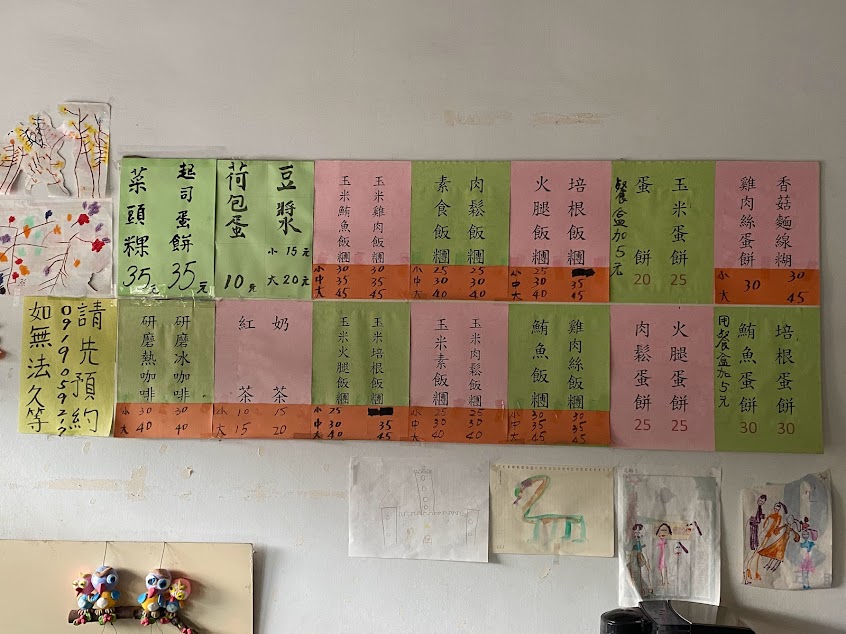 香菇麵線糊
30
45
雞肉絲蛋餅
小 30
大
玉米蛋餅
25
蛋餅
20
餐盒加5元
培根飯糰
35
45
火腿飯糰
小 25
中 30
大 40
肉鬆飯糰
25
30
40
素食飯糰
小 25
中 30
大 40
玉米雞肉飯糰
30
35
45
玉米鮪魚飯糰
小 30
中 35
大 45
豆漿
小 15元
大 20元
荷包蛋
10元
起司蛋餅
35元
菜頭粿
35元
培根蛋餅
30
鮪魚蛋餅
30
用餐盒加5元
火腿蛋餅
25
肉鬆蛋餅
25
雞肉絲飯糰
30
35
45
鮪魚飯糰
小 30
中 35
大 45
玉米肉鬆飯糰
25
30
40
玉米素飯糰
小 25
中 30
大 40
玉米培根飯糰
35
45
玉米火腿飯糰
小 25
中 30
大 40
奶茶
15
20
紅茶
小 10
大 15
研磨冰咖啡
30
40
研磨熱咖啡
小 30
大 40
請先預約
0919059217
如無法久等